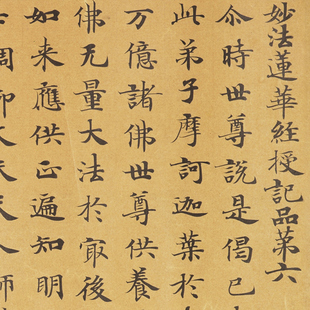 妙法蓮華經授記品第六
尒時世尊說是偈已
此弟子摩訶迦葉於
万億諸佛世尊供養
佛无量大法於㝡後
如来應供正遍知明
調御丈夫天人師